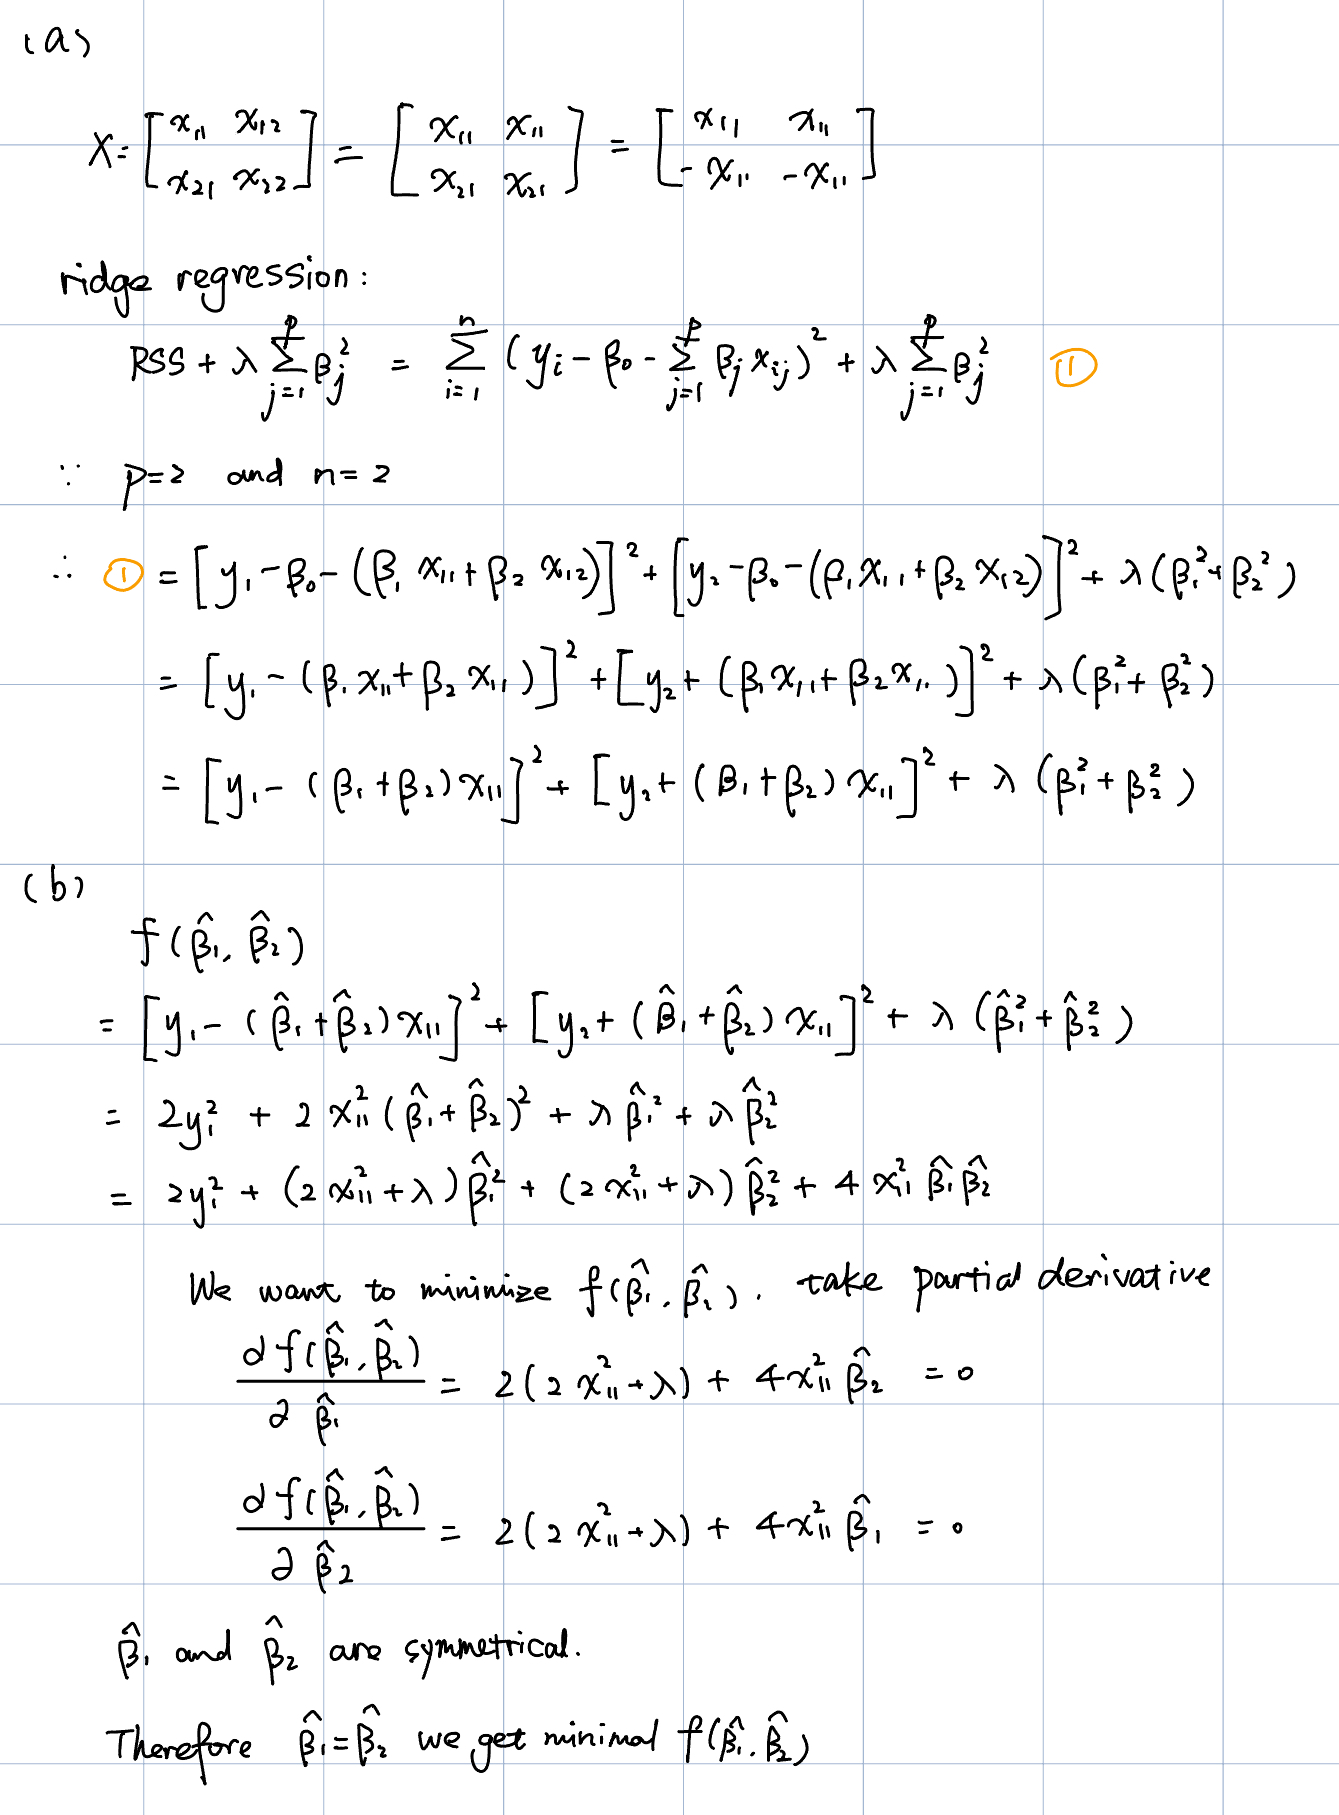 (a)
X = [ x₁₁ x₁₂ ; x₂₁ x₂₂ ] = [ x₁₁ x₁₁ ; x₂₁ x₂₁ ] = [ x₁₁ x₁₁ ; -x₁₁ -x₁₁ ]
ridge regression:
RSS + λ ∑_{j=1}^{p} β_j² = ∑_{i=1}^{n} (y_i - β₀ - ∑_{j=1}^{p} β_j x_{ij})² + λ ∑_{j=1}^{p} β_j² ①
∵ p=2 and n=2
∴ ① = [y₁ - β₀ - (β₁ x₁₁ + β₂ x₁₂)]² + [y₂ - β₀ - (β₁ x₁₁ + β₂ x₁₂)]² + λ(β₁² + β₂²)
= [y₁ - (β₁ x₁₁ + β₂ x₁₁)]² + [y₂ + (β₁ x₁₁ + β₂ x₁₁)]² + λ(β₁² + β₂²)
= [y₁ - (β₁ + β₂) x₁₁]² + [y₂ + (β₁ + β₂) x₁₁]² + λ (β₁² + β₂²)
(b)
f(β̂₁, β̂₂)
= [y₁ - (β̂₁ + β̂₂) x₁₁]² + [y₂ + (β̂₁ + β̂₂) x₁₁]² + λ (β̂₁² + β̂₂²)
= 2y₁² + 2 x₁₁² (β̂₁ + β̂₂)² + λ β̂₁² + λ β̂₂²
= 2y₁² + (2 x₁₁² + λ) β̂₁² + (2 x₁₁² + λ) β̂₂² + 4 x₁₁² β̂₁ β̂₂
We want to minimize f(β̂₁, β̂₂). take partial derivative
∂f(β̂₁, β̂₂) / ∂β̂₁ = 2(2 x₁₁² + λ) + 4x₁₁² β̂₂ = 0
∂f(β̂₁, β̂₂) / ∂β̂₂ = 2(2 x₁₁² + λ) + 4x₁₁² β̂₁ = 0
β̂₁ and β̂₂ are symmetrical.
Therefore β̂₁ = β̂₂ we get minimal f(β̂₁, β̂₂)